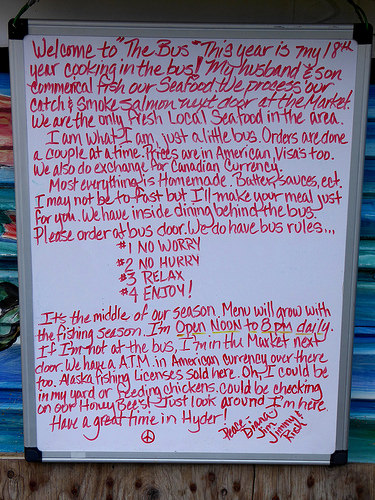 Welcome to "The Bus" This year is my 18th
year cooking in the bus! My husband & son
commerical fish our Seafood. We process our
catch & smoke salmon nuxt door at the Market.
We are the only Fresh Local Seafood in the area.
I am what I am, just a little bus. Orders are done
a couple at a time. Prices are in American, Visa's too.
We also do exchange for Canadian Currency.
Most everything is Homemade. Batter, sauces, ect.
I may not be to fast but I'll make your meal just
for you. We have inside dining behind the bus.
Please order at bus door. We do have bus rules...
#1 NO WORRY
#2 NO HURRY
#3 RELAX
#4 ENJOY!
It's the middle of our season. Menu will grow with
the fishing season. I'm Open NOON to 8pm daily.
If I'm not at the bus, I'm in the Market next
door. We have a A.T.M. in American currency over there
too. Alaska fishing Licenses sold here. Oh, I could be
in my yard or feeding chickens. Could be checking
on our Honey Bee's! Just look around I'm here.
Have a great time in Hyder!
Peace
Diana
Jim
Jimmy &
Rich